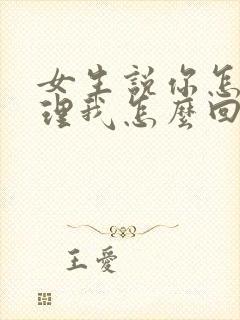 女生說你怎
理我怎麼回
王愛